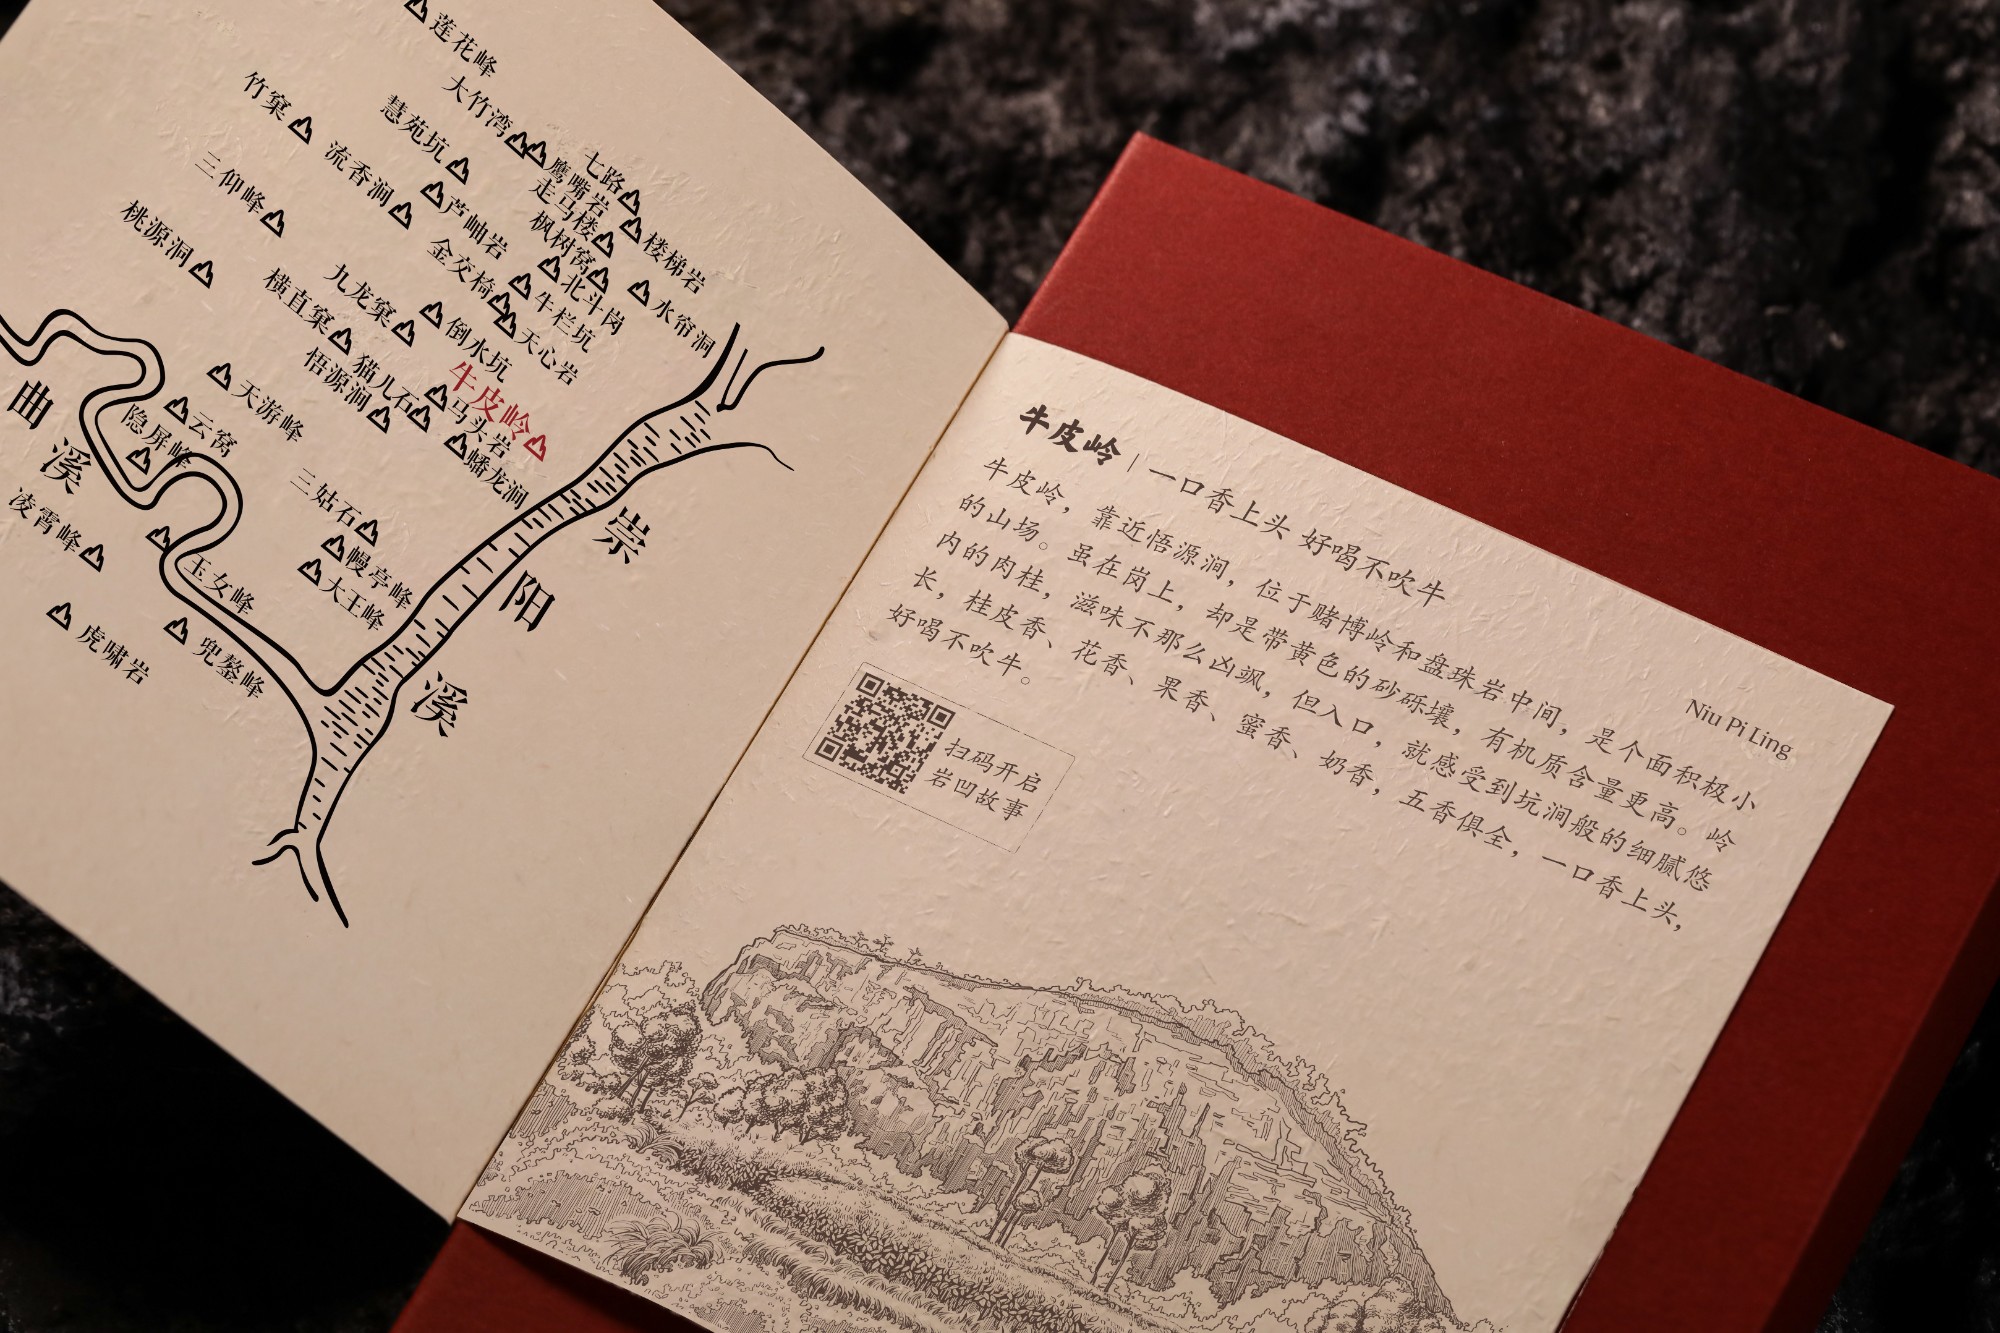 莲花峰
大竹湾
竹窠
慧苑坑
七路
鹰嘴岩
走马楼
楼梯岩
流香涧
芦岫岩
枫树窝
三仰峰
金交椅
北斗岗
水帘洞
桃源洞
牛栏坑
九龙窠
天心岩
横直窠
倒水坑
牛皮岭
猫儿石
悟源涧
马头岩
蟠龙涧
天游峰
云窝
隐屏峰
曲
溪
三姑石
幔亭峰
大王峰
凌霄峰
玉女峰
虎啸岩
兜鍪峰
崇
阳
溪
牛皮岭 | 一口香上头 好喝不吹牛
Niu Pi Ling
牛皮岭，靠近悟源涧，位于赌博岭和盘珠岩中间，是个面积极小
的山场。虽在岗上，却是带黄色的砂砾壤，有机质含量更高。岭
内的肉桂，滋味不那么凶飒，但入口，就感受到坑涧般的细腻悠
长，桂皮香、花香、果香、蜜香、奶香，五香俱全，一口香上头，
好喝不吹牛。
扫码开启
岩凹故事